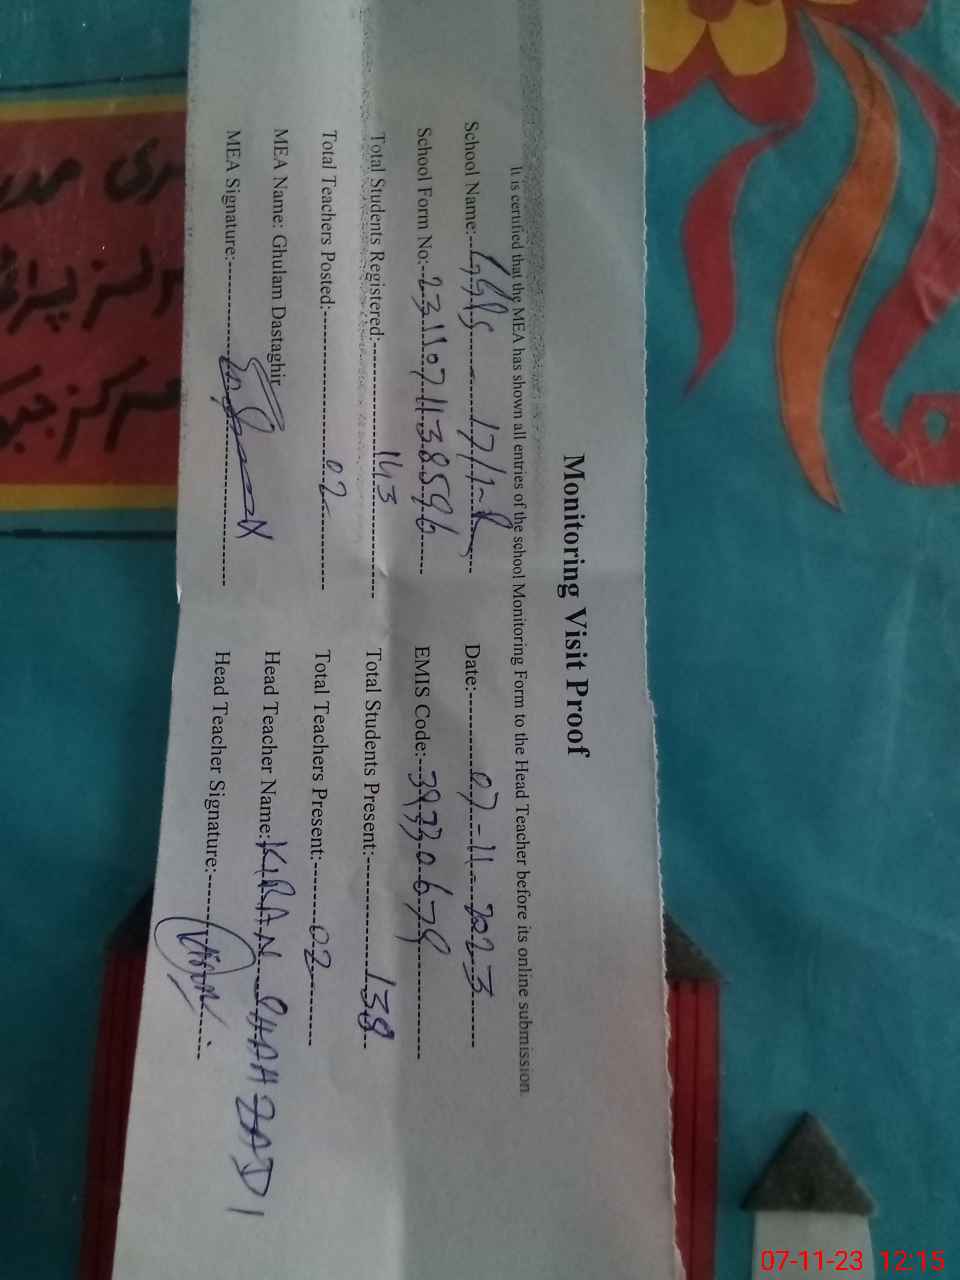 Monitoring Visit Proof
It is certified that the MEA has shown all entries of the school Monitoring Form to the Head Teacher before its online submission.
School Name:- GGPS 17/1-R Date:- 07-11-2023
School Form No:- 2311071138596 EMIS Code:- 39330679
Total Students Registered:- 143 Total Students Present:- 138
Total Teachers Posted:- 02 Total Teachers Present:- 02
MEA Name: Ghulam Dastaghir Head Teacher Name: KIRAN SHAHZADI
MEA Signature:- Head Teacher Signature:-
07-11-23 12:15